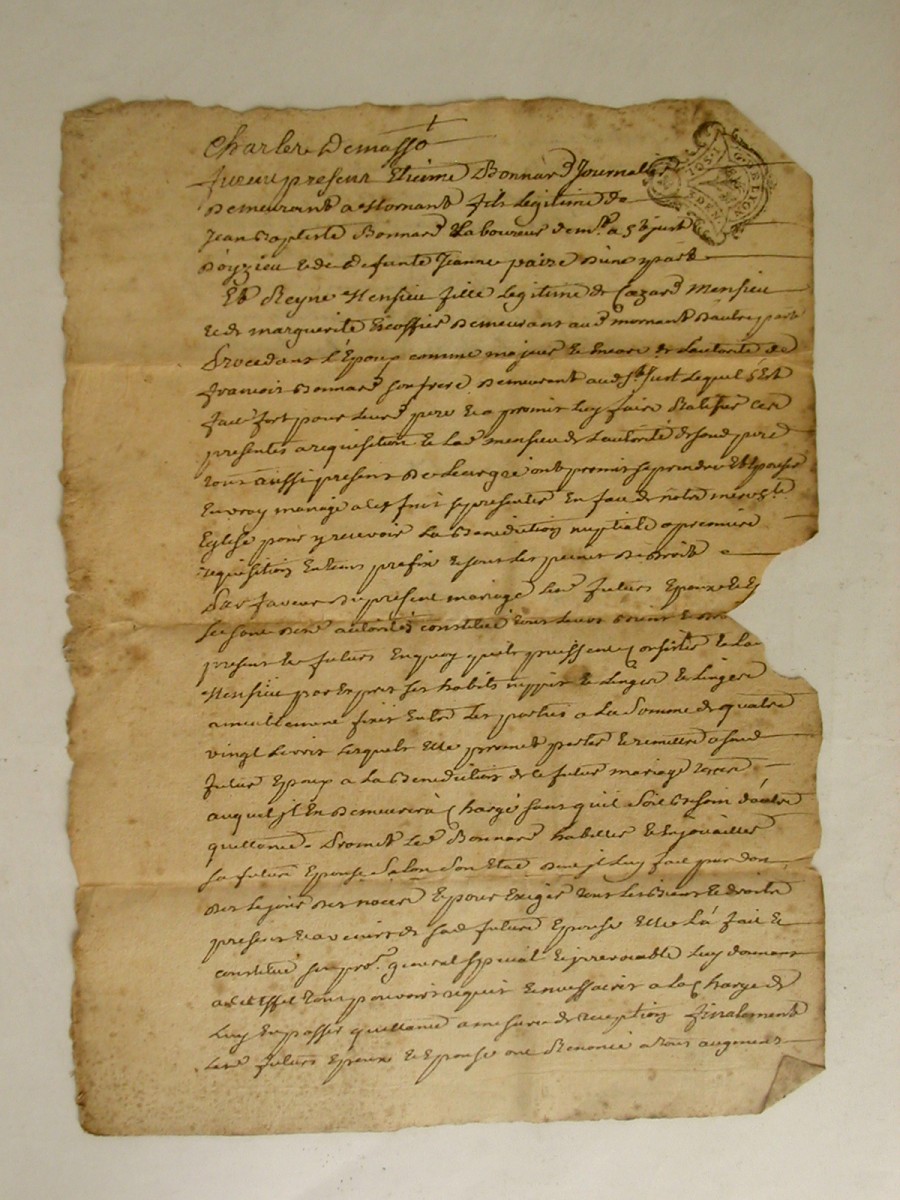 Charles Demasso
furent present Etienne Bonnard Journallier
demeurant a Mornant fils Legitime de
Jean Baptiste Bonnard Laboureur demt a St just
Doyzieu et de defunte Jeanne paire d'une part
Et Reyne Mensieu fille Legitime de Mensieu
et de marguerite Escoffier demeurant aud mornant d'autre part
Procedant l'Epoux comme majeur et encore de L'autorité de
francois Bonnard son frere demeurant aud St just Lequel s'Est
fait fort pour leurd pere et a promis luy faire Ratifier ces
presentes a requisition et Lad mensieu de L'autorité de sond pere
tous aussi present de Leur gré ont promis se prendre et Epouser
En vray mariage a cet fait se presenter En face de notre mere Ste
Eglise pour y recevoir La Benediction nuptiale a premiere
requisition Entens prefix et sous les peines de droit
En faveur du present mariage Led futurs Epoux et
se sont desd autorités constitué tous leurs biens et
present et futurs En quoy qu'ils puissent Consister et La
Mensieu par Expres ses habits nippes et Linges
amiablement fixés Entre Les parties a La Somme de quatre
vingt Livres Lesquels Elle promet porter et remettre a sond
futur Epoux a La Benediction de ce futur mariage
auquel jl En demeurera Chargé sans qu'il soit besoin d'autre
quittance. Promet Led Bonnard habiller et Enjouailler
sa future Epouse Selon Son Etat dont jl Luy fait pur don
des le jour des noces et pour Exiger tous les biens et droits
present et avenir de sad future Epouse Elle L'a fait et
constitué son procr general special et irrevocable Luy donnant
a cet Effet tous pouvoirs requis et necessaires a La Charge de
Luy En passer quittance a mesure de reception finalement
Lesd futurs Epoux et Epouse ont Renoncé a tous augment